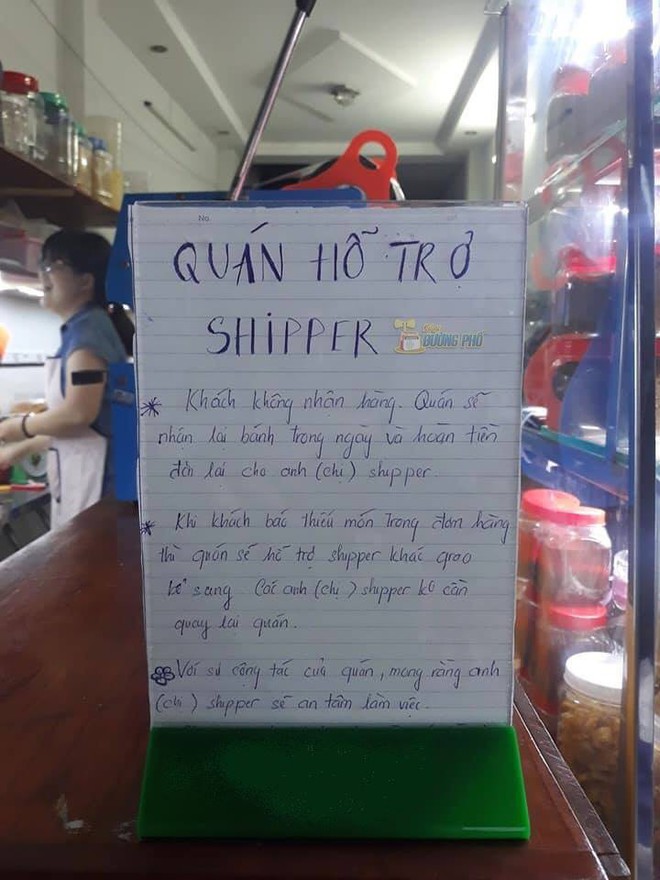 No.
QUÁN HỖ TRỢ
SHIPPER
ĐƯỜNG PHỐ
* Khách không nhận hàng. Quán sẽ
nhận lại bánh trong ngày và hoàn tiền
đơn lại cho anh (chị) shipper.
* Khi khách báo thiếu món trong đơn hàng
thì quán sẽ hỗ trợ shipper khác giao
bổ sang. Các anh (chị) shipper kô cần
quay lại quán.
Với sự cộng tác của quán, mong rằng anh
(chị) shipper sẽ an tâm làm việc.